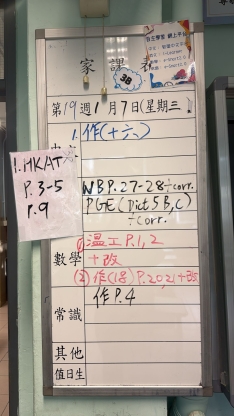 家課表
3B
第19週1月7日(星期三
1.作(十六)
1.HKAT
P.3-5
P.9
WB P.27-28÷corr.
PGE(Dict 5 B,C)
÷corr.
①温工P.1,2
數學 +改
(2)作(18)P.20,21+改
常識 作P.4
其他
值日生